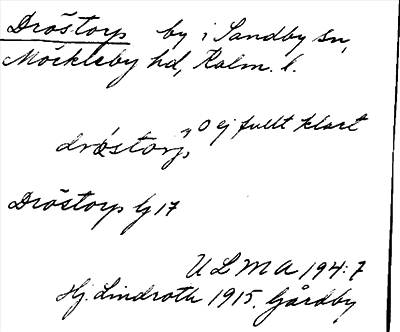 Dröstorp by i Sandby sn,
Möckleby hd, Kalm. l.
o ej fullt klart
dröstorp
Dröstorp lj 17
ULMA 194:7
Hj. Lindroth 1915. Gårdby